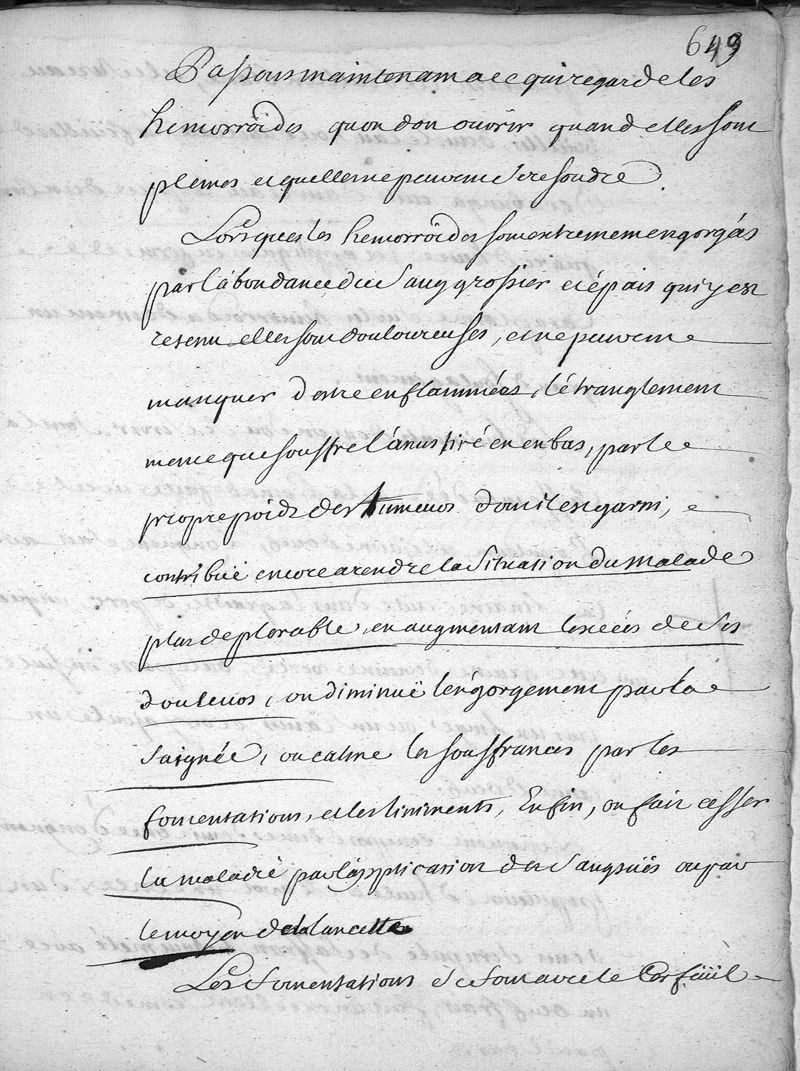 649
Passons maintenant a ce qui regarde les
hemorroïdes quon doit ouvrir quand elles sont
pleines et quelle ne peuvent se resoudre.
Lorsque les hemorroïdes sont extremement engorgés
par l'abondance du sang grossier et épais qui y est
retenu elles sont douloureuses, et ne peuvent
manquer d'estre enflammées, l'étranglement
meme que souffre l'anus tiré en en bas, par le
propre poids des tumeurs dont il est garni,
contribuë encore a rendre la situation du malade
plus deplorable, en augmentant lexcés de ses
douleurs, on diminuë l'engorgement par la
saignée, on calme les souffrances par les
fomentations, et les liniments, Enfin, on fait cesser
la maladie par l'application des sangsuës ou par
le moyen de la lancette
Les fomentations se font avec le Cerfüïil